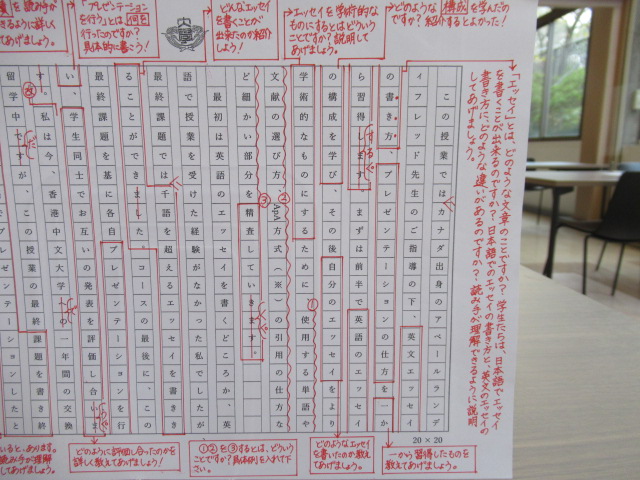 「エッセイ」とは、どのような文章のことですか？学生たちは、日本語でエッセイ
を書くことが出来るのですか？日本語でのエッセイの書き方と、英文のエッセイの
書き方に、どのような違いがあるのですか？読み手が理解できるように説明
してあげましょう。
どのような構成を学んだの
ですか？紹介するとよかった！
エッセイを学術的な
ものにするとはどういう
ことですか？説明して
あげましょう。
どんなエッセイ
を書くことが
出来たのか紹介
しよう！
「プレゼンテーション
を行う」とは何を
行ったのですか？
具体的に書こう！
この授業ではカナダ出身のアベールランデ
ィフレッド先生のご指導の下、英文エッセイ
の書き方、プレゼンテーションの仕方を一か
ら習得します。まずは前半で英語のエッセイ
の構成を学び、その後自分のエッセイをより
学術的なものにするために使用する単語や
文献の選び方、APA方式（※）の引用の仕方な
ど細かい部分を精査していきます。
最初は英語のエッセイを書くどころか、英
語で授業を受けた経験がなかった私でしたが
最終課題では千語を超えるエッセイを書きき
ることができました。コースの最後に、この
最終課題を基に各自プレゼンテーションを行
い、学生同士でお互いの発表を評価し合いま
す。
私は今、香港中文大学への一年間の交換
留学中ですが、この授業の最終課題を書き終
20×20
一から習得したものを
教えてあげましょう。
どのようなエッセイ
を書いたのか教え
てあげましょう！
①②を③するとは、どういう
ことですか？具体例を入れて下
さい。
どのように評価し合ったのかを
詳しく教えてあげましょう！